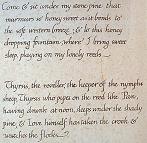 Come & sit under my stone-pine that
murmurs so honey-sweet as it bends to
the soft western breeze; & lo this honey
dropping fountain, where I bring sweet
sleep, playing on my lonely reeds.
Thyrsis, the reveller, the keeper of the nymphs'
sheep, Thyrsis who pipes on the reed like Pan,
having drunk at noon, sleeps under the shady
pine, & Love himself has taken the crook &
watches the flocks.